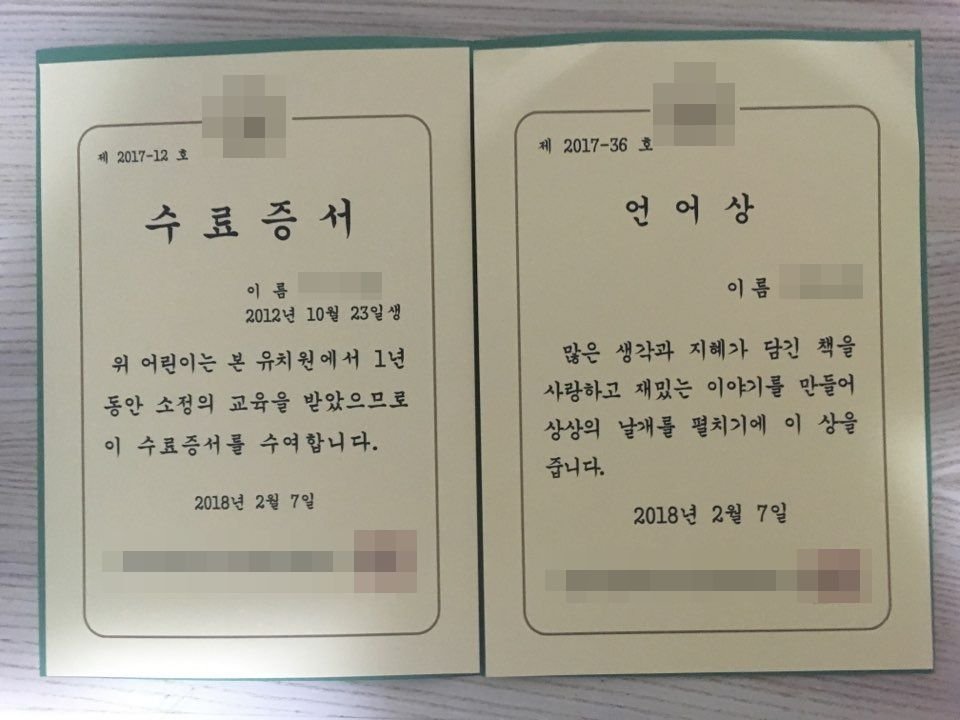 제 2017-12 호
수료증서
이 름
2012년 10월 23일생
위 어린이는 본 유치원에서 1년
동안 소정의 교육을 받았으므로
이 수료증서를 수여합니다.
2018년 2월 7일
제 2017-36 호
언어상
이름
많은 생각과 지혜가 담긴 책을
사랑하고 재밌는 이야기를 만들어
상상의 날개를 펼치기에 이 상을
줍니다.
2018년 2월 7일